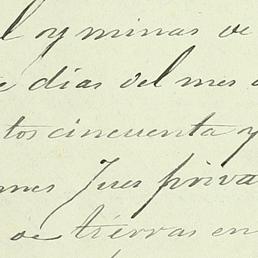 l oy minas de
e dias del mes
tos cincuenta y
mes Jues priva
de tierras en